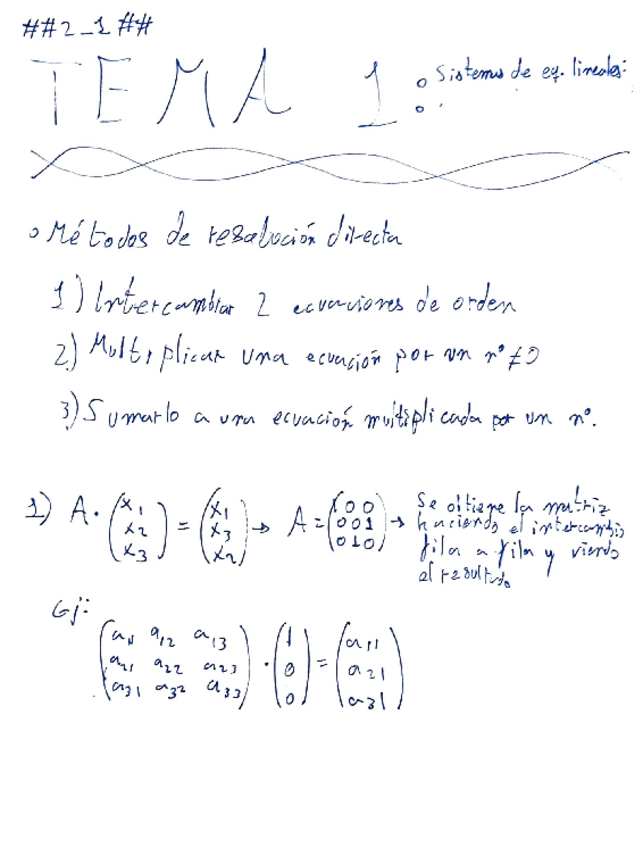 ##2_1##
TEMA 1: Sistemas de eq. lineales:
○ Métodos de resolución directa
1) Intercambiar 2 ecuaciones de orden
2) Multiplicar una ecuación por un nº ≠ 0
3) Sumarlo a una ecuación multiplicada por un nº.
1) A · (x₁ x₂ x₃) = (x₁ x₃ x₂) → A = (1 0 0 / 0 0 1 / 0 1 0) → Se obtiene la matriz
haciendo el intercambio
fila a fila y viendo
el resultado
Ej:
(a₁₁ a₁₂ a₁₃ / a₂₁ a₂₂ a₂₃ / a₃₁ a₃₂ a₃₃) · (1 0 0) = (a₁₁ a₂₁ a₃₁)